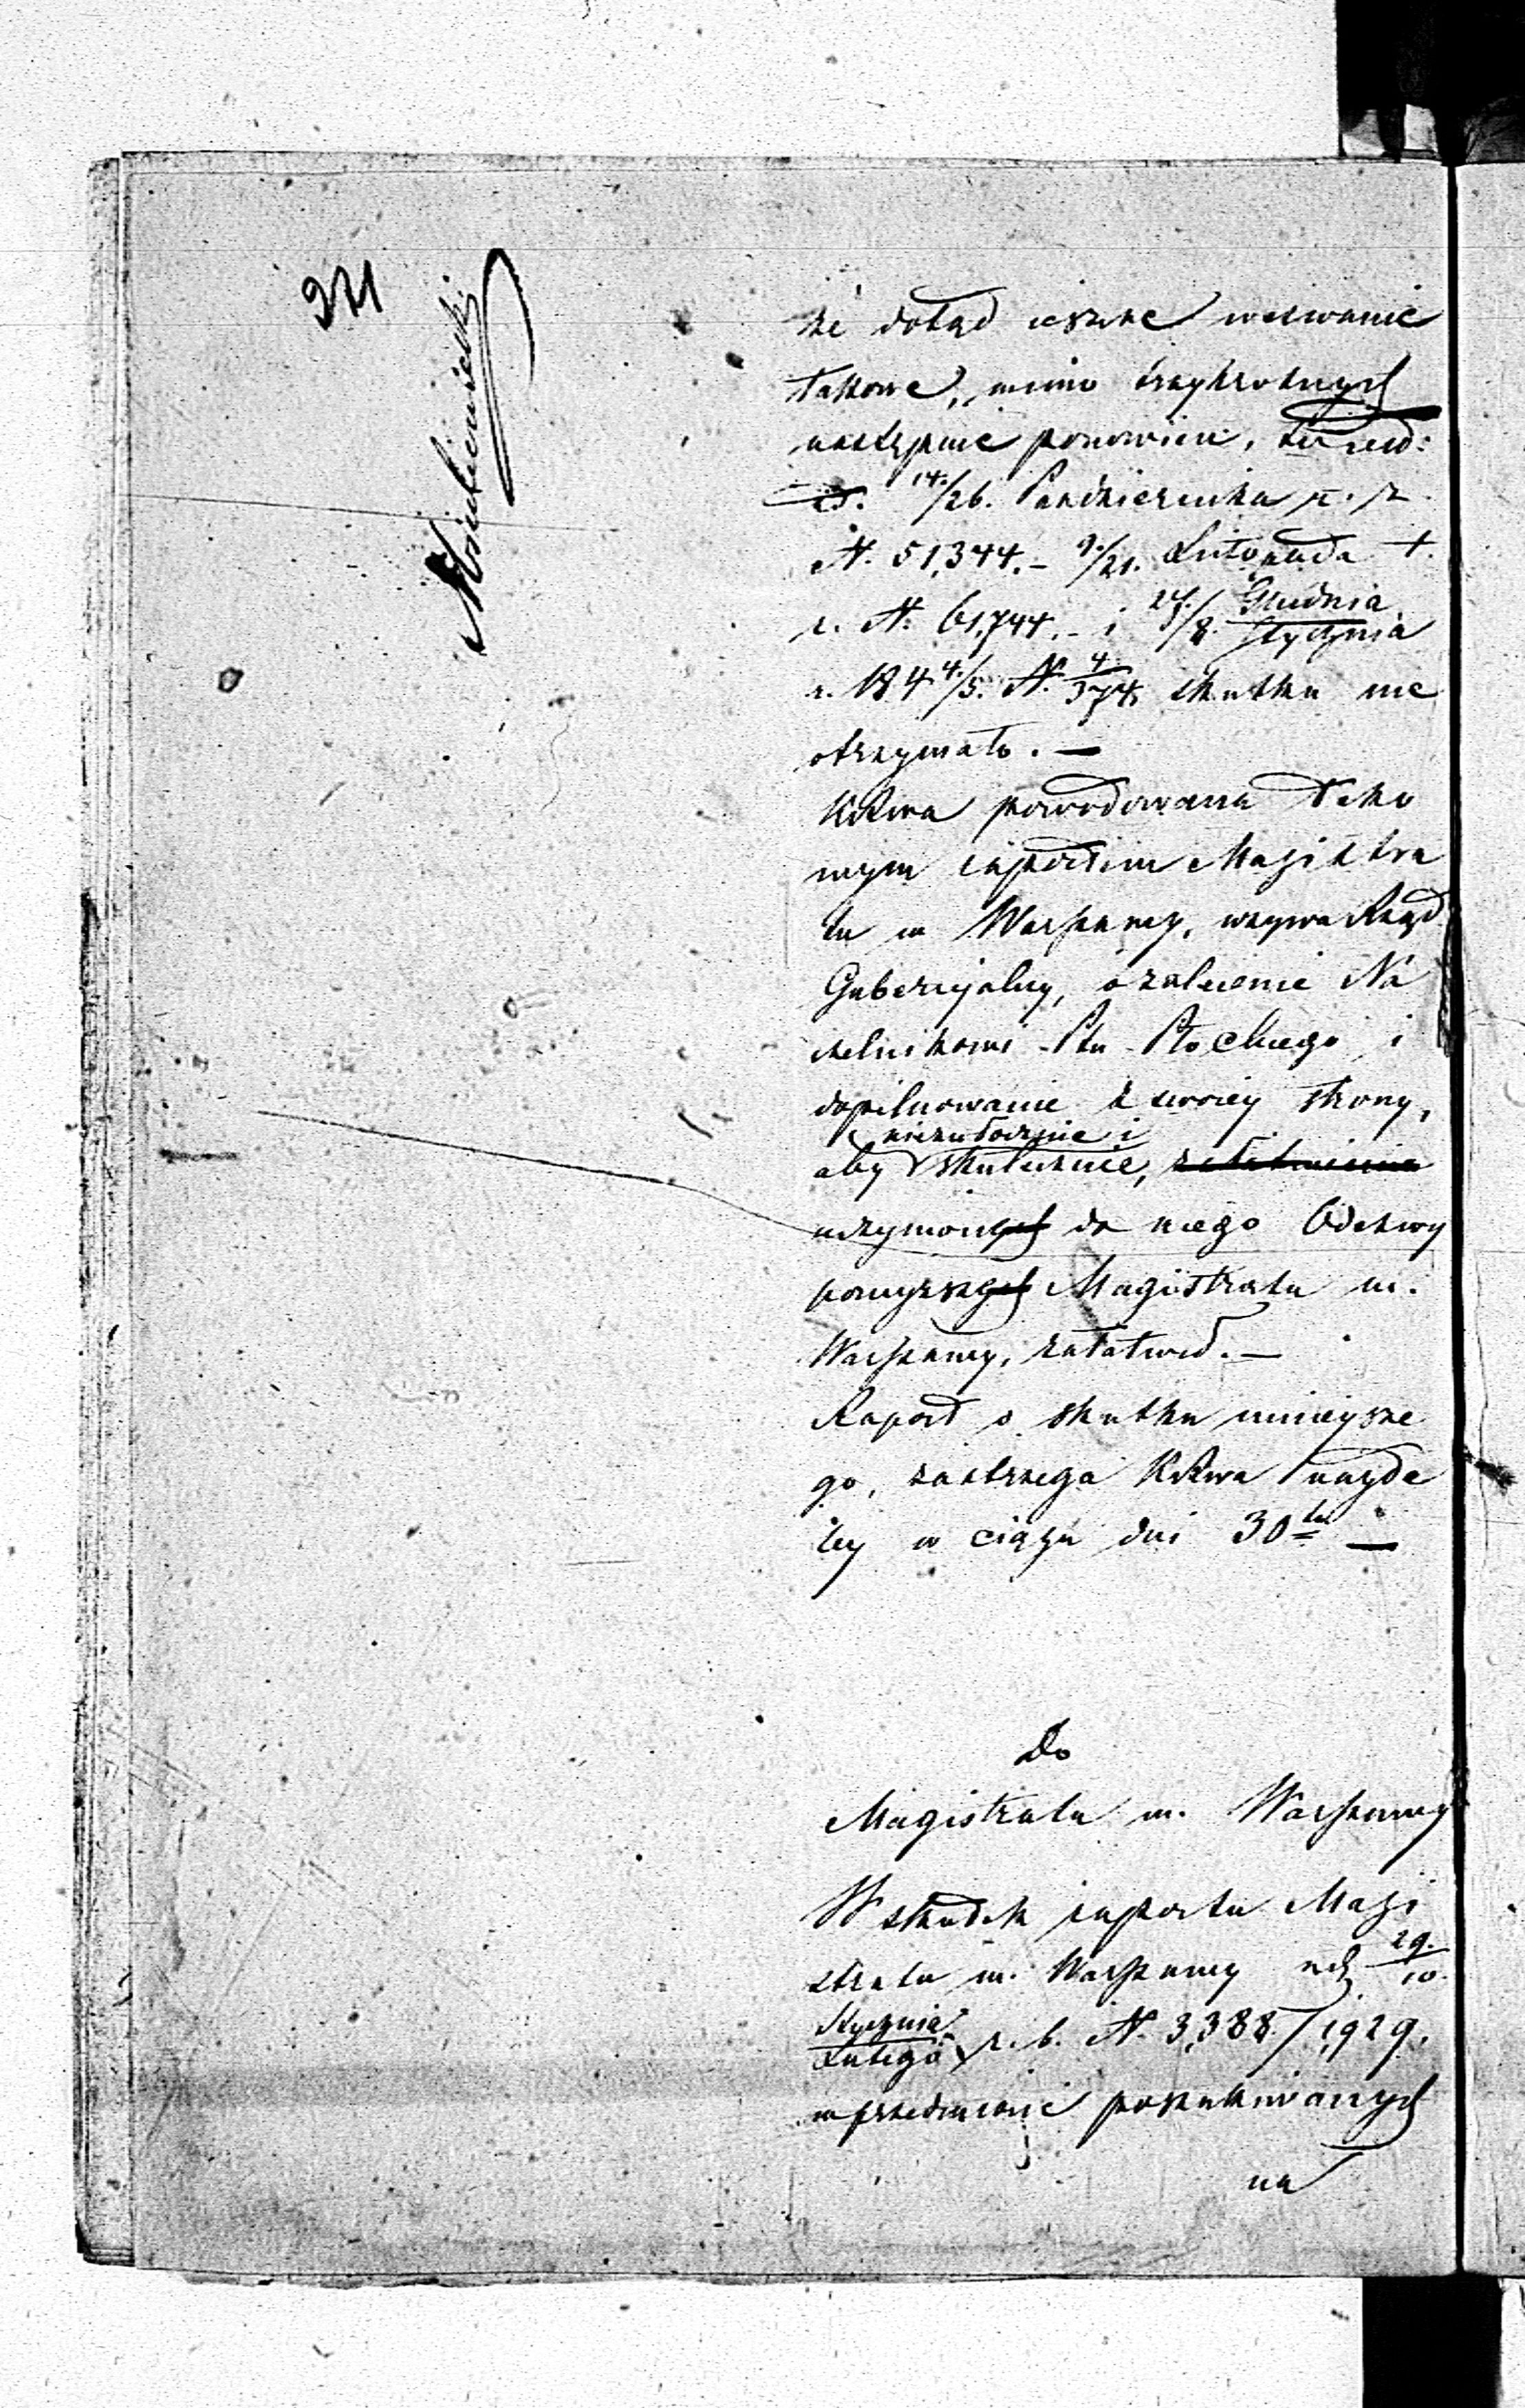 321
że dotąd ieszcze wezwanie
takowe, mimo trzykrotnych
następnie ponowień,
d. 14/26. Października z. r.
N. 51,344.- 9/21. Listopada t.
r. N. 61,744.- i 27/8. Grudnia/Stycznia
r. 1844/5. N. 4/374 skutku nie
otrzymało. —
KRwa powodowana
nym raportem Magistra
tu m Warszawy, wzywa Rząd
Gubernijalny, o zalecenie Na
czelnikowi Ptu Płockiego i
dopilnowanie z swoiey strony,
niezwłocznie i
aby skutecznie,
do niego Odezwy
powyższych Magistratu m.
Warszawy, załatwił. —
Raport o skutku ninieysze
go, zastrzega KRwa nayda
ley w ciągu dni 30tu —
Do
Magistratu m. Warszawy
W skutek raportu Magi
stratu m. Warszawy z d. 29./10.
Stycznia/Lutego r. b. N. 3,388./1,929.
w przedmiocie poszukiwanych
na